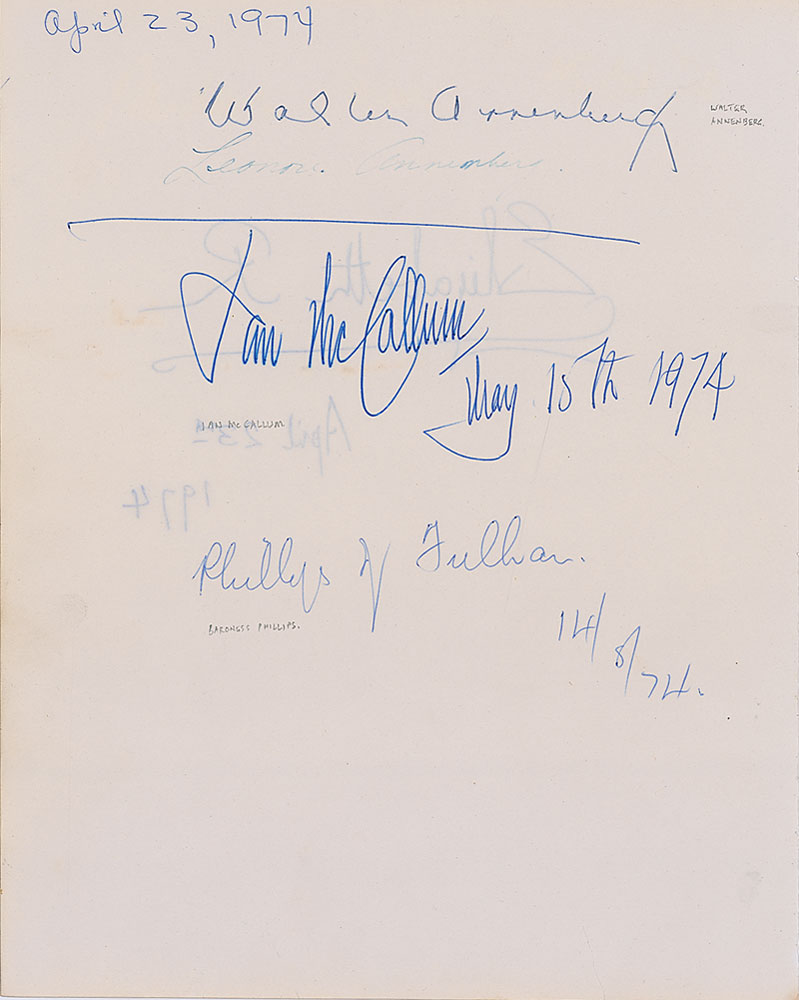 April 23, 1974
Walter Annenberg
WALTER
ANNENBERG.
Leonore Annenberg.
Elizabeth R
Ian McCallum
May 15th 1974
IAN McCALLUM
April 23rd
1974
Phillips of Fulham.
BARONESS PHILLIPS.
14/8/74.